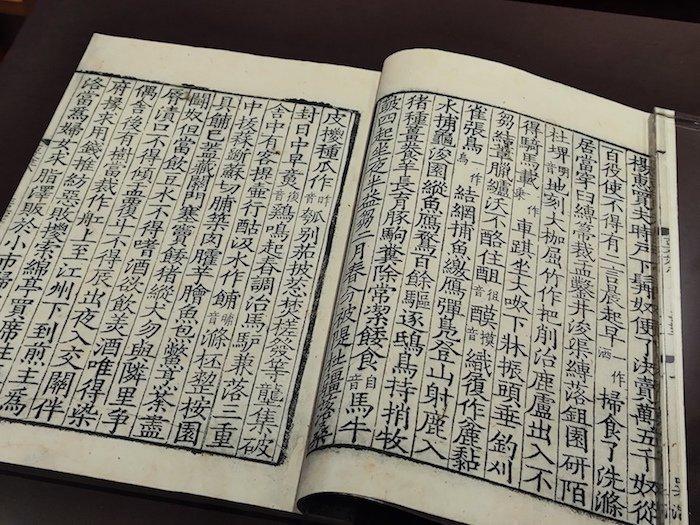 楊惠買夫時戶下髯奴便了決賣萬五千奴從
百役使不得有二言晨起早一作洒掃食了洗滌
居當穿臼縛箒裁盂鑿井浚渠縛落鉏園研陌
杜埤地刻大枷屈竹作杷削治鹿盧出入不
得騎馬載一作乘車踑坐大呶下牀振頭垂釣刈
芻葦臘纑沃下酪住音徂音模織履作麤黏
雀張鳥結網捕魚繳鴈彈鳧登山射鹿入
水捕龜浚園縱魚鴈鶩百餘驅逐鴟鳥持捎牧
猪種薑養羊長育豚駒糞除常潔餧食音自馬牛
鼓四起坐夜半益芻二月春分被隄杜疆落桑
皮椶種瓜作瓠別茄披葱焚槎發龍集破
封日中早音鷄鳴起舂調治馬驢兼落三重
舍中有客提壺行酤汲水作餔音滌杯整按園
中拔蒜斷蘇切脯築肉臛芋膾魚炰鼈烹茶盡
具餔已蓋藏關門塞竇餧猪縱犬勿與隣里爭
鬬奴但當飯豆水不得嗜酒欲飲美酒唯得染
脣漬口不得傾盂覆斗不得辰出夜入交關伴
偶舍後有樹當裁作船上至江州下到前主爲
府掾求用錢推紡惡敗椶索綿亭買席往
當爲婦女求脂澤販於小市歸